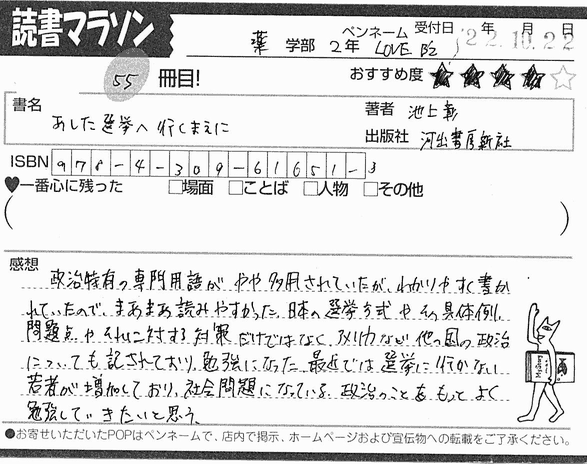 読書マラソン
薬 学部 2年 ペンネーム LOVE B'z 受付日 '22.10.22 年 月 日
55 冊目! おすすめ度 ★★★★☆
書名 あした選挙へ行くまえに
著者 池上彰
出版社 河出書房新社
ISBN 978-4-309-61651-3
♥一番心に残った □場面 □ことば □人物 □その他
( )
感想
政治特有の専門用語が やや多用されていたが、わかりやすく書か
れていたので、まあまあ読みやすかった。日本の選挙方式やその具体例、
問題点やそれに対する対策だけではなく アメリカなど 他の国の政治
についても記されており、勉強になった。最近では選挙に行かない
若者が増加しており、社会問題になっている。政治のことをもっとよく
勉強していきたいと思う。
●お寄せいただいたPOPはペンネームで、店内で掲示、ホームページおよび宣伝物への転載をご了承ください。